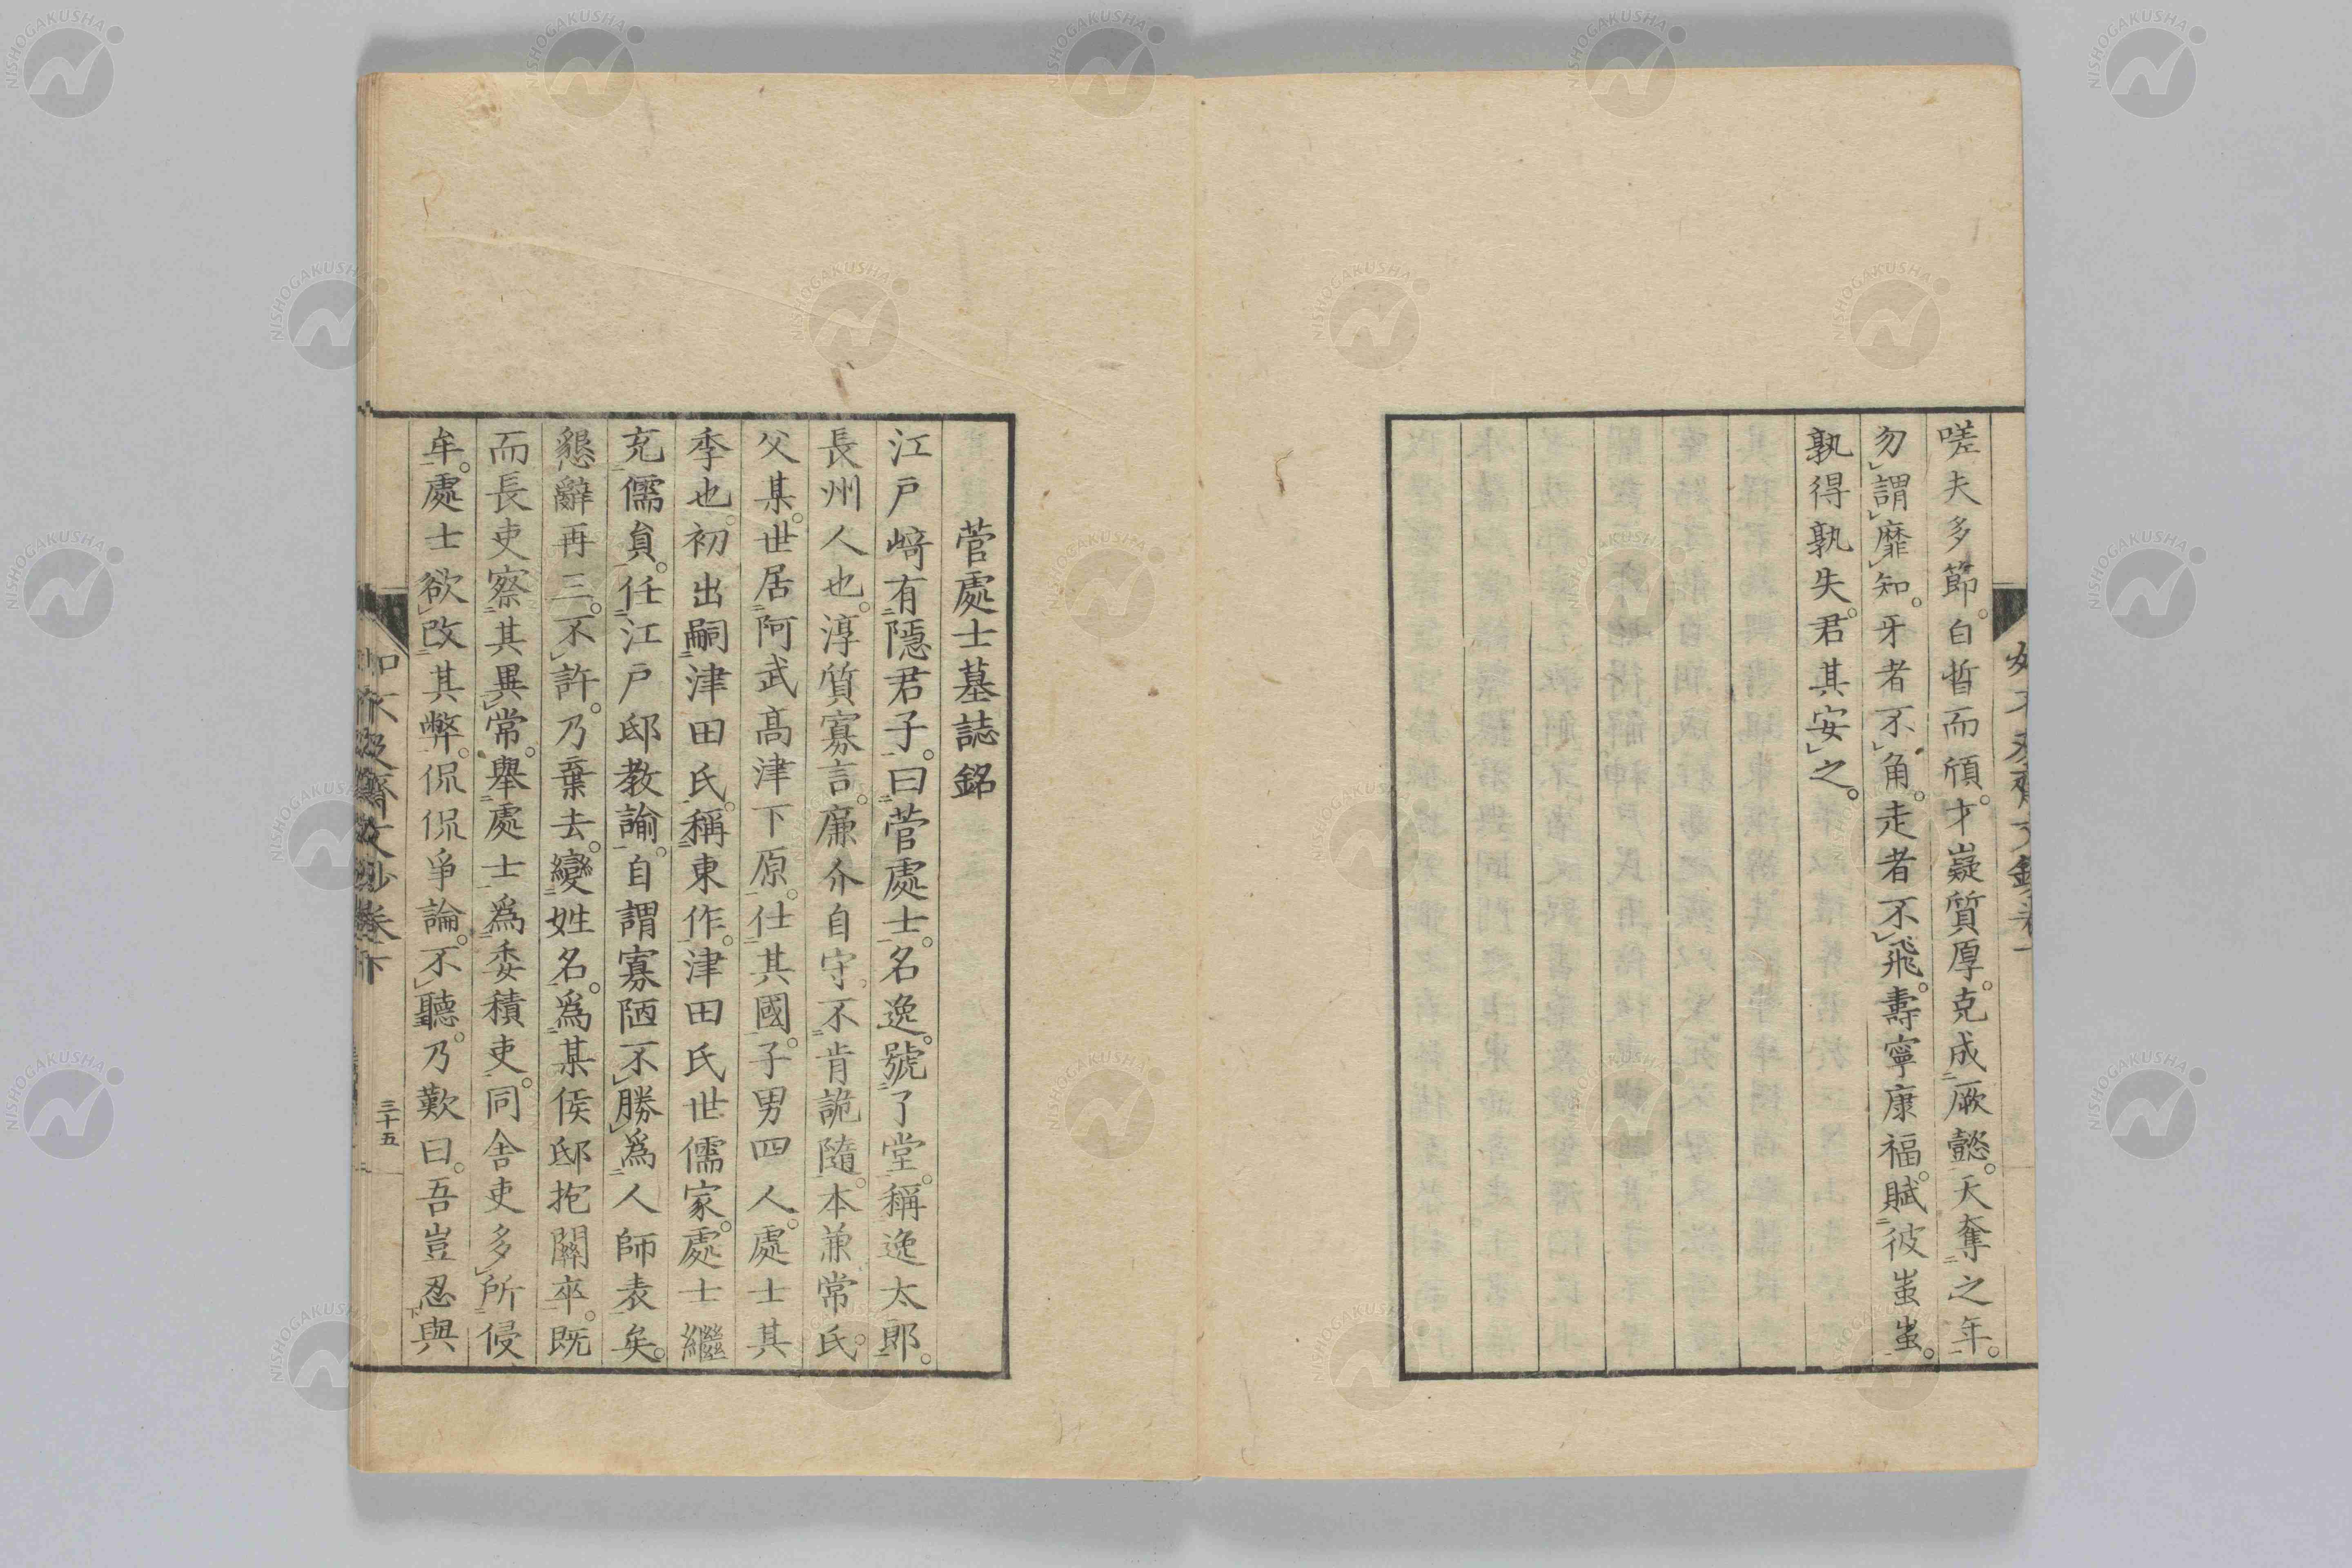 嗟夫多節。白晳而頎。才嶷質厚。克成厥懿。天奪之年。
勿謂靡知。牙者不角。走者不飛。壽寧康福。賦彼蚩蚩。
孰得孰失。君其安之。
菅處士墓誌銘
江戶﨑有隱君子。曰菅處士。名逸。號了堂。稱逸太郎。
長州人也。淳質寡言。廉介自守。不肯詭隨。本兼常氏。
父某。世居阿武高津下原。仕其國。子男四人。處士其
季也。初出嗣津田氏。稱東作。津田氏世儒家。處士繼
充儒員。任江戶邸教諭。自謂寡陋不勝爲人師表矣。
懇辭再三。不許。乃棄去。變姓名。爲某侯邸抱關卒。既
而長吏察其異常。舉處士爲委積吏。同舍吏多所侵
牟。處士欲改其弊。侃侃爭論。不聽。乃歎曰。吾豈忍與
如不及齋文鈔卷下
三十五
NISHOGAKUSHA